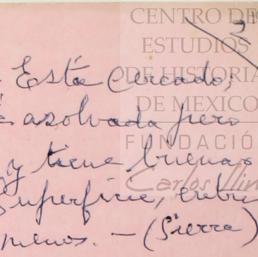 Está cercado;
azolvada pero
y tiene buenas
superficie, entre
menos. — (Sierra)
CENTRO DE
ESTUDIOS
DE HISTORIA
DE MEXICO
FUNDACIÓ
Carlos Slim